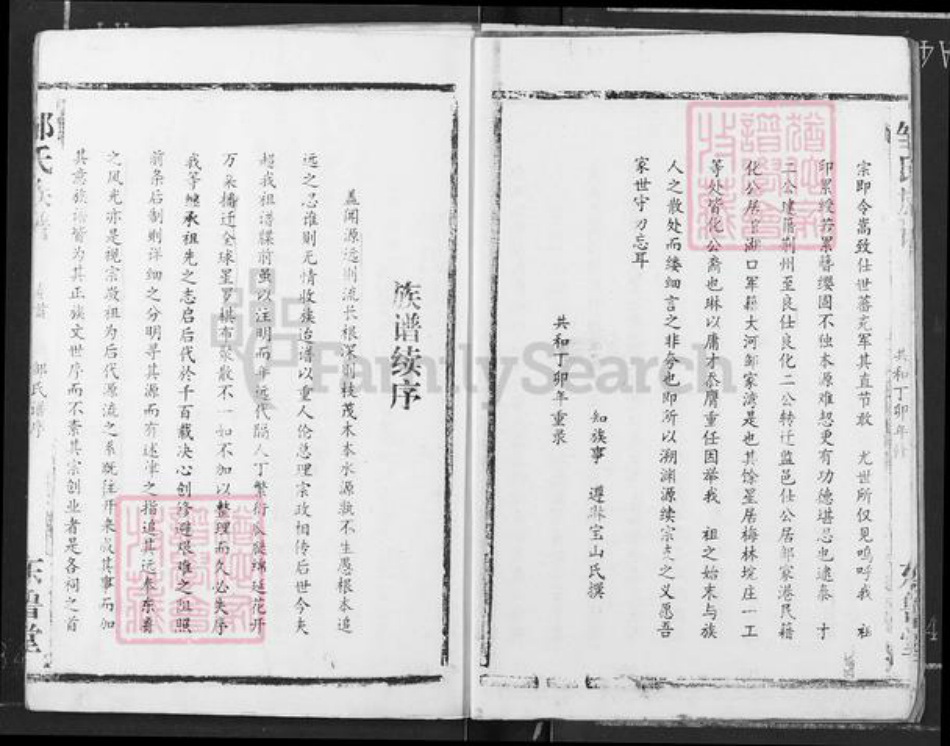 宗即令嵩致仕世蕃充军其直节敢 尤世所仅见呜呼我 祖
印累绶若累簪缨固不独本源难恝更有功德堪思也逮泰 才
二公建籍荆州至良仕良化二公转迁监邑仕公居邹家港民籍
化公居官湖口军籍大河邹家湾是也其馀星居梅林垸庄一工
等处皆化公裔也琳以庸才忝膺重任因举我 祖之始末与族
人之散处而缕细言之非夸也即所以溯渊源续宗之义愿吾
家世守勿忘耳
知族事 遵琳宝山氏撰
共和丁卯年重录
共和丁卯年
族谱续序
盖闻源远则流长根深则枝茂木本水源孰不生愚根本追
远之忍谁则无情收族造谱以重人伦总理宗政相传后世今夫
超我祖谱牒前虽以注明而年远代隔人丁繁衍瓜瓞绵延花开
万朵播迁全球星罗棋布聚散不一如不加以整理而久必失序
我等继承祖先之志启后代于千百载决心创修避艰难之阻照
前条后制则详细之分明寻其源而有述津之指追其远奉东鲁
之风光亦是视宗敬祖为后代源流之系既往开来成其事而加
其意族谱皆为其正族文世序而不紊其宗创业者是各祠之首
邹氏族谱
邹氏谱序
东鲁堂
FamilySearch